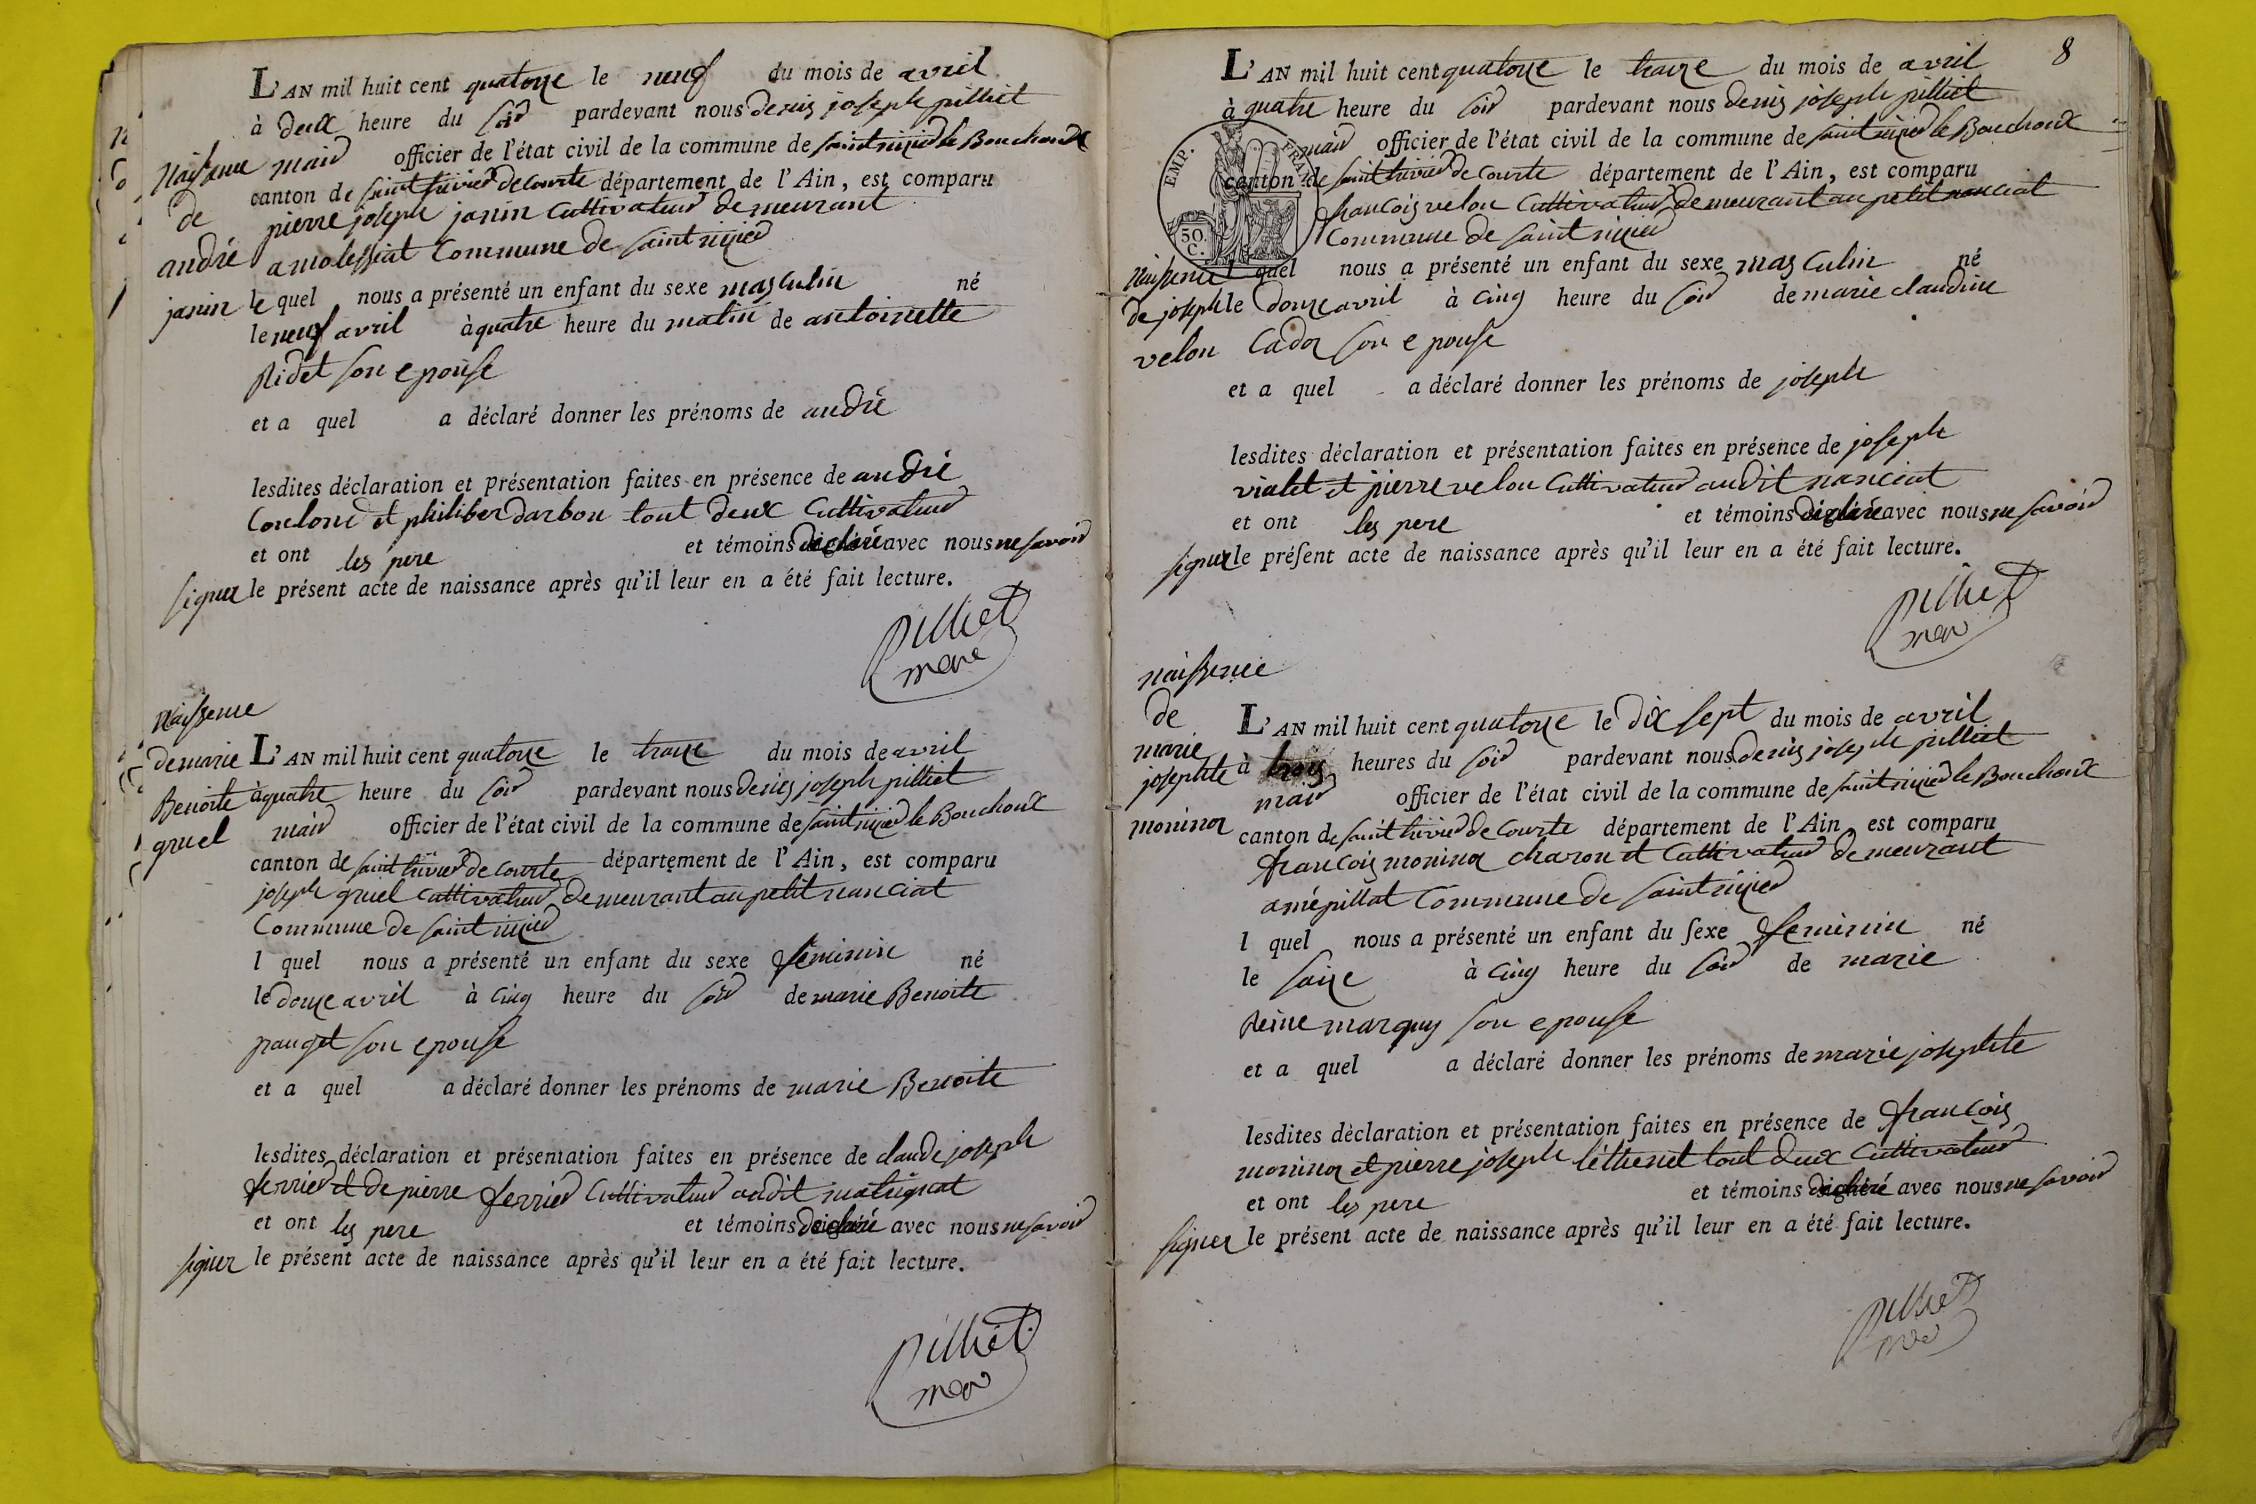 L'AN mil huit cent quatorze le neuf du mois de avril
à deux heure du soir pardevant nous denis joseph pilliet
maire officier de l'état civil de la commune de saint nizier le Bouchoux
canton de saint trivier de Courte département de l'Ain, est comparu
pierre joseph janin Cultivateur demeurant
a molessiat Commune de saint nizier
le quel nous a présenté un enfant du sexe masculin né
le neuf avril à quatre heure du matin de antoinette
Ridet son epouse
et a quel a déclaré donner les prénoms de andré
lesdites déclaration et présentation faites en présence de andré
et philiber darbon tout deux Cultivateur
et ont les pere et témoins déclaré avec nous ne savoir
signer le présent acte de naissance après qu'il leur en a été fait lecture.
Pilliet
mere
Naissence
de
andré
janin
L'AN mil huit cent quatorze le traize du mois de avril
à quatre heure du soir pardevant nous denis joseph pilliet
maire officier de l'état civil de la commune de saint nizier le Bouchoux
canton de saint trivier de Courte département de l'Ain, est comparu
joseph gruel Cultivateur demeurant au petit nanciat
Commune de saint nizier
l quel nous a présenté un enfant du sexe feminin né
le douze avril à cinq heure du soir de marie Benoite
pauget son epouse
et a quel a déclaré donner les prénoms de marie Benoite
lesdites déclaration et présentation faites en présence de claude joseph
ferrier et de pierre ferrier Cultivateur audit matignat
et ont les pere et témoins déclaré avec nous ne savoir
signer le présent acte de naissance après qu'il leur en a été fait lecture.
Pilliet
mere
Naissence
de marie
Benoite
gruel
8
L'AN mil huit cent quatorze le traize du mois de avril
à quatre heure du soir pardevant nous denis joseph pilliet
maire officier de l'état civil de la commune de saint nizier le Bouchoux
canton de saint trivier de Courte département de l'Ain, est comparu
francois velon Cultivateur demeurant au petit nanciat
Commune de saint nizier
l quel nous a présenté un enfant du sexe masculin né
le douze avril à cinq heure du soir de marie claudine
Cador son epouse
et a quel a déclaré donner les prénoms de joseph
lesdites déclaration et présentation faites en présence de joseph
vialet et pierre velon Cultivateur audit nanciat
et ont les pere et témoins déclaré avec nous ne savoir
signer le présent acte de naissance après qu'il leur en a été fait lecture.
Pilliet
mere
EMP. FRAN.
50.
C.
Naissence
de joseph
velon
L'AN mil huit cent quatorze le dix sept du mois de avril
à trois heures du soir pardevant nous denis joseph pilliet
maire officier de l'état civil de la commune de saint nizier le Bouchoux
canton de saint trivier de Courte département de l'Ain, est comparu
francois moninor charon et Cultivateur demeurant
a mépillat Commune de saint nizier
l quel nous a présenté un enfant du sexe feminin né
le saize à cinq heure du soir de marie
Reine marquy son epouse
et a quel a déclaré donner les prénoms de marie josephte
lesdites déclaration et présentation faites en présence de francois
moninor et pierre joseph léthenet tout deux Cultivateur
et ont les pere et témoins déclaré avec nous ne savoir
signer le présent acte de naissance après qu'il leur en a été fait lecture.
Pilliet
mere
naissence
de
marie
josephte
moninor